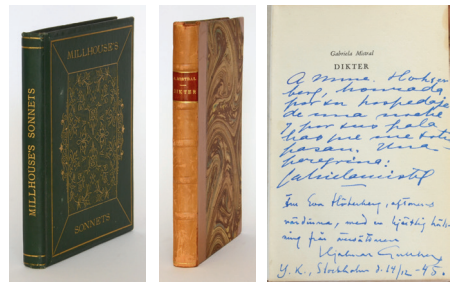 MILLHOUSE'S
SONNETS
MILLHOUSE'S SONNETS
G. MISTRAL
DIKTER
Gabriela Mistral
DIKTER
A Mme. Hökerberg, honrada
por su hospedaje
de una noche
y por sus pala
que me
pasan. Una
peregrina:
Gabriela Mistral
Fru Eva Hökerberg, aftonens
värdinna, med en hjärtlig häls-
ning från översättaren
Hjalmar Gullberg
Stockholm d. 14/12 -45.